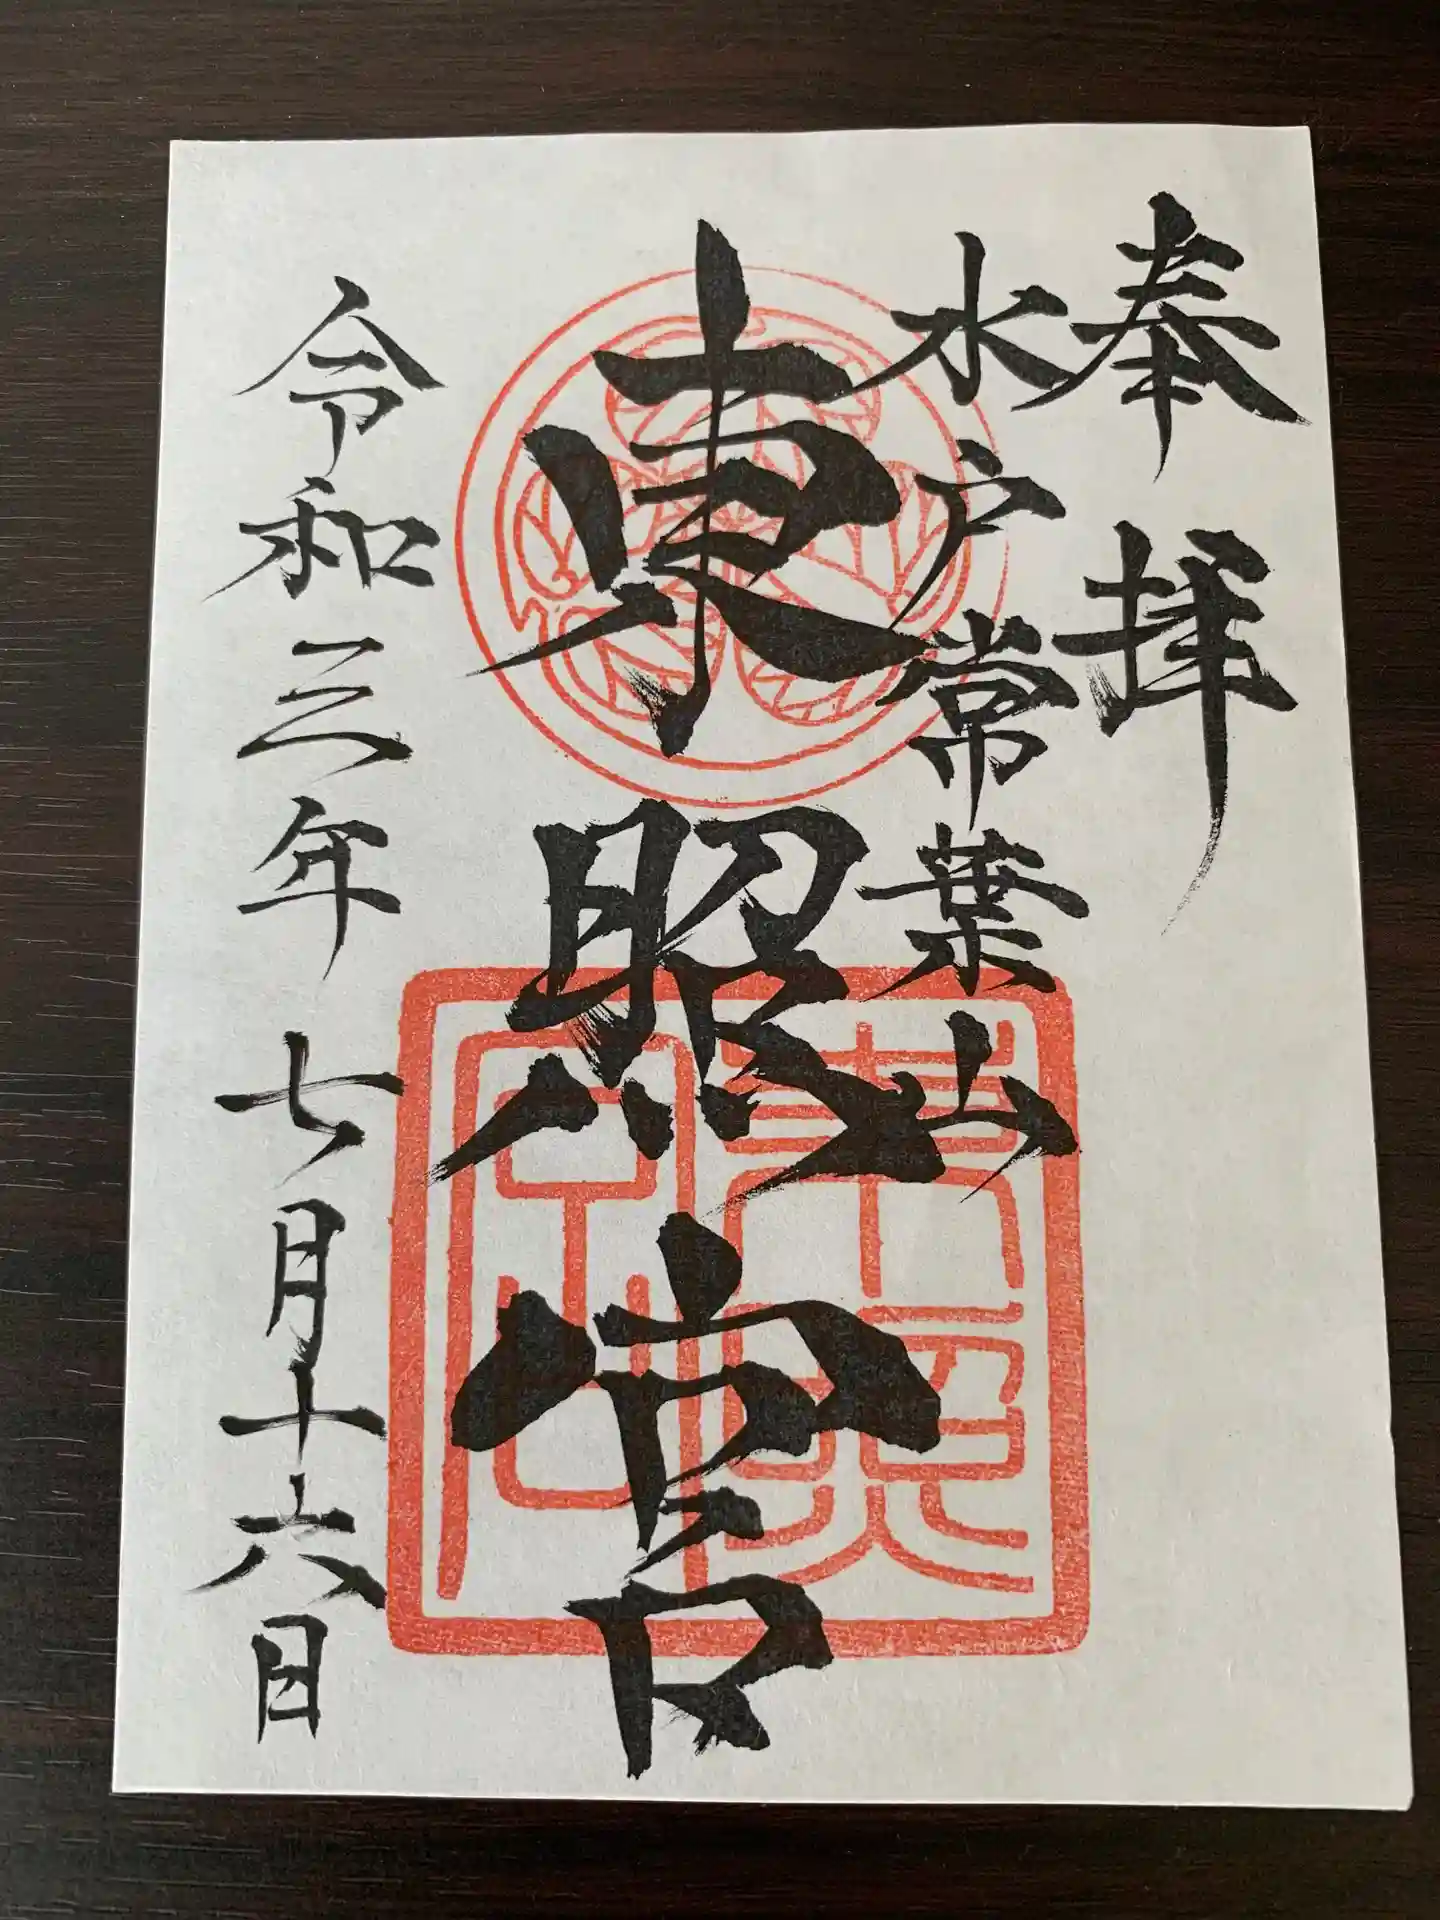 奉拝
水戸常葉山
東照宮
令和三年七月十六日
東照宮印